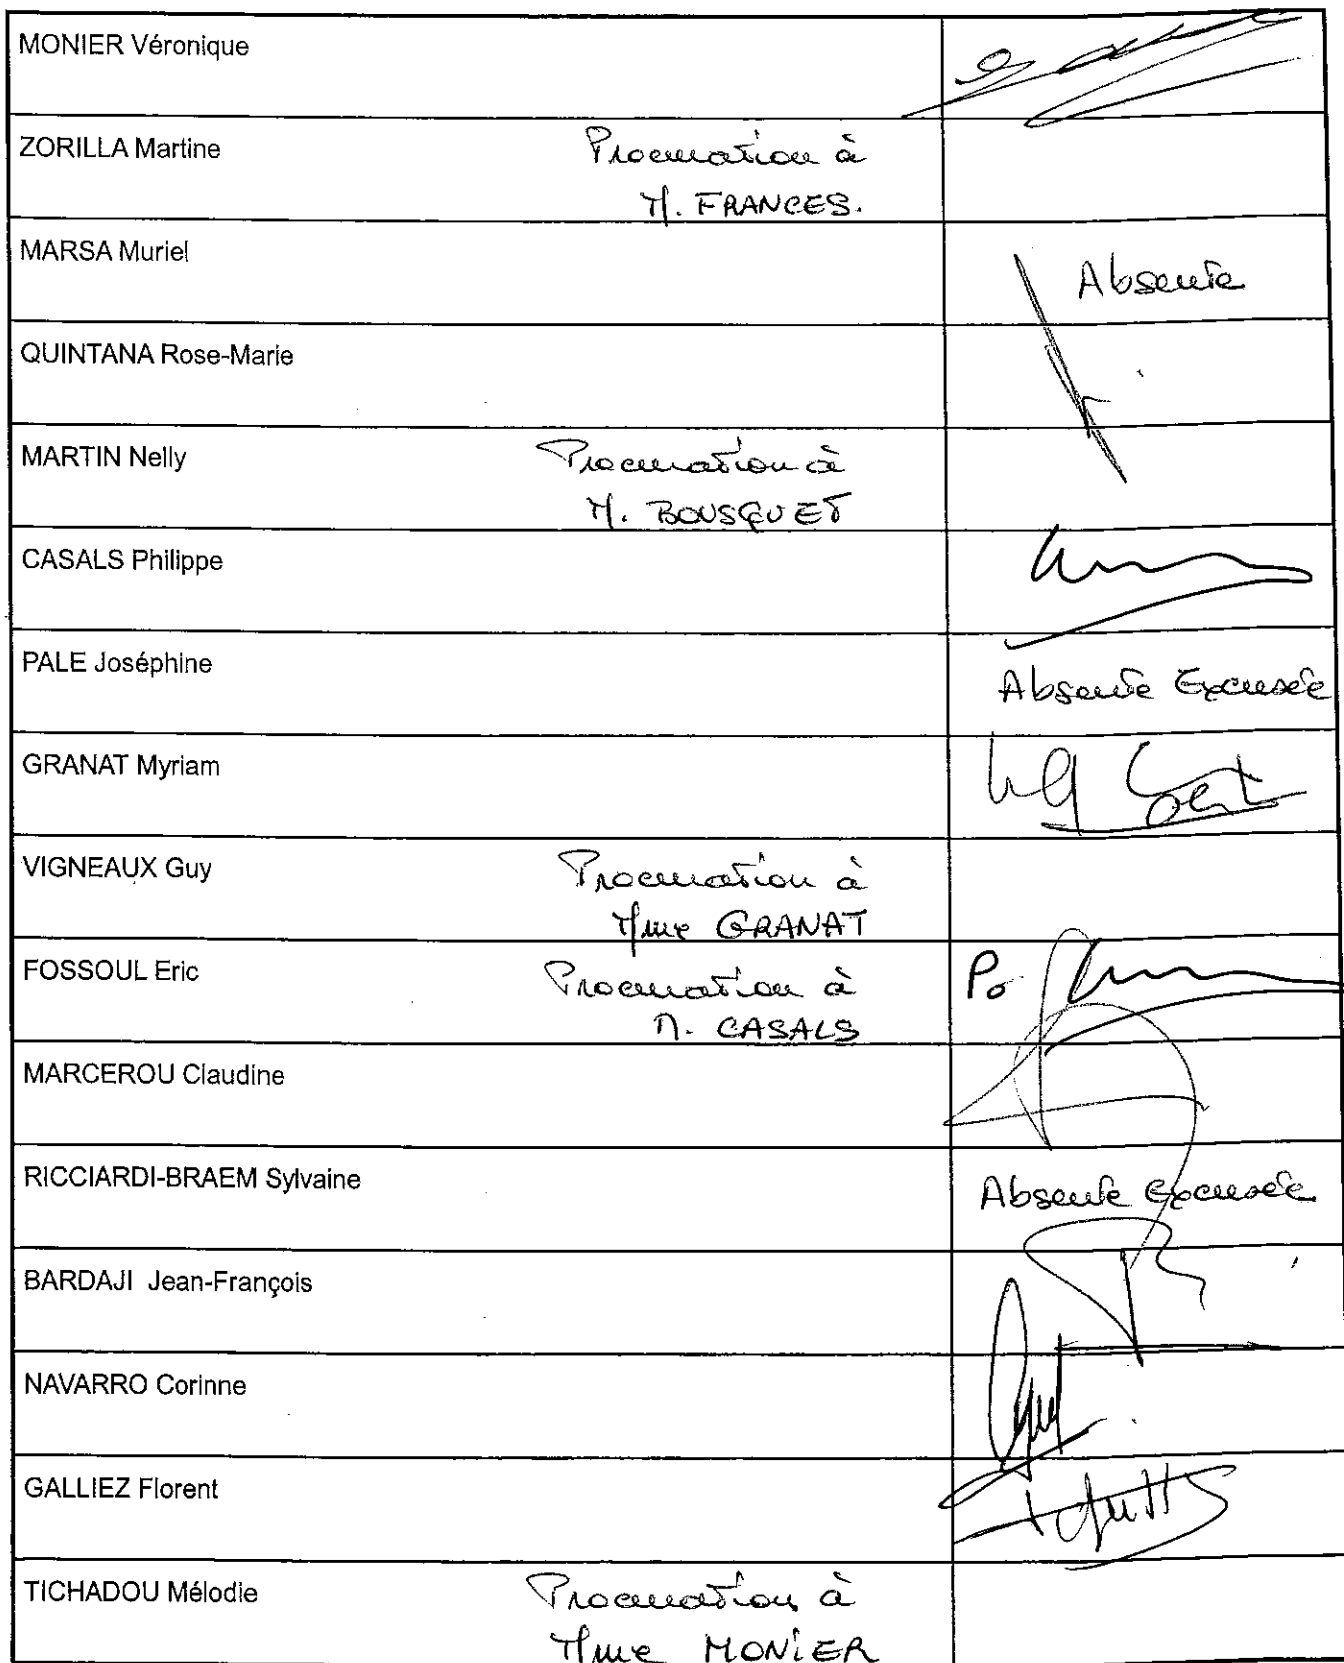 MONIER Véronique
ZORILLA Martine Procuration à
M. FRANCES.
MARSA Muriel Absente
QUINTANA Rose-Marie
MARTIN Nelly Procuration à
M. BOUSQUET
CASALS Philippe
PALE Joséphine Absente Excusée
GRANAT Myriam
VIGNEAUX Guy Procuration à
Mme GRANAT
FOSSOUL Eric Procuration à Po
M. CASALS
MARCEROU Claudine
RICCIARDI-BRAEM Sylvaine Absente excusée
BARDAJI Jean-François
NAVARRO Corinne
GALLIEZ Florent
TICHADOU Mélodie Procuration à
Mme MONIER